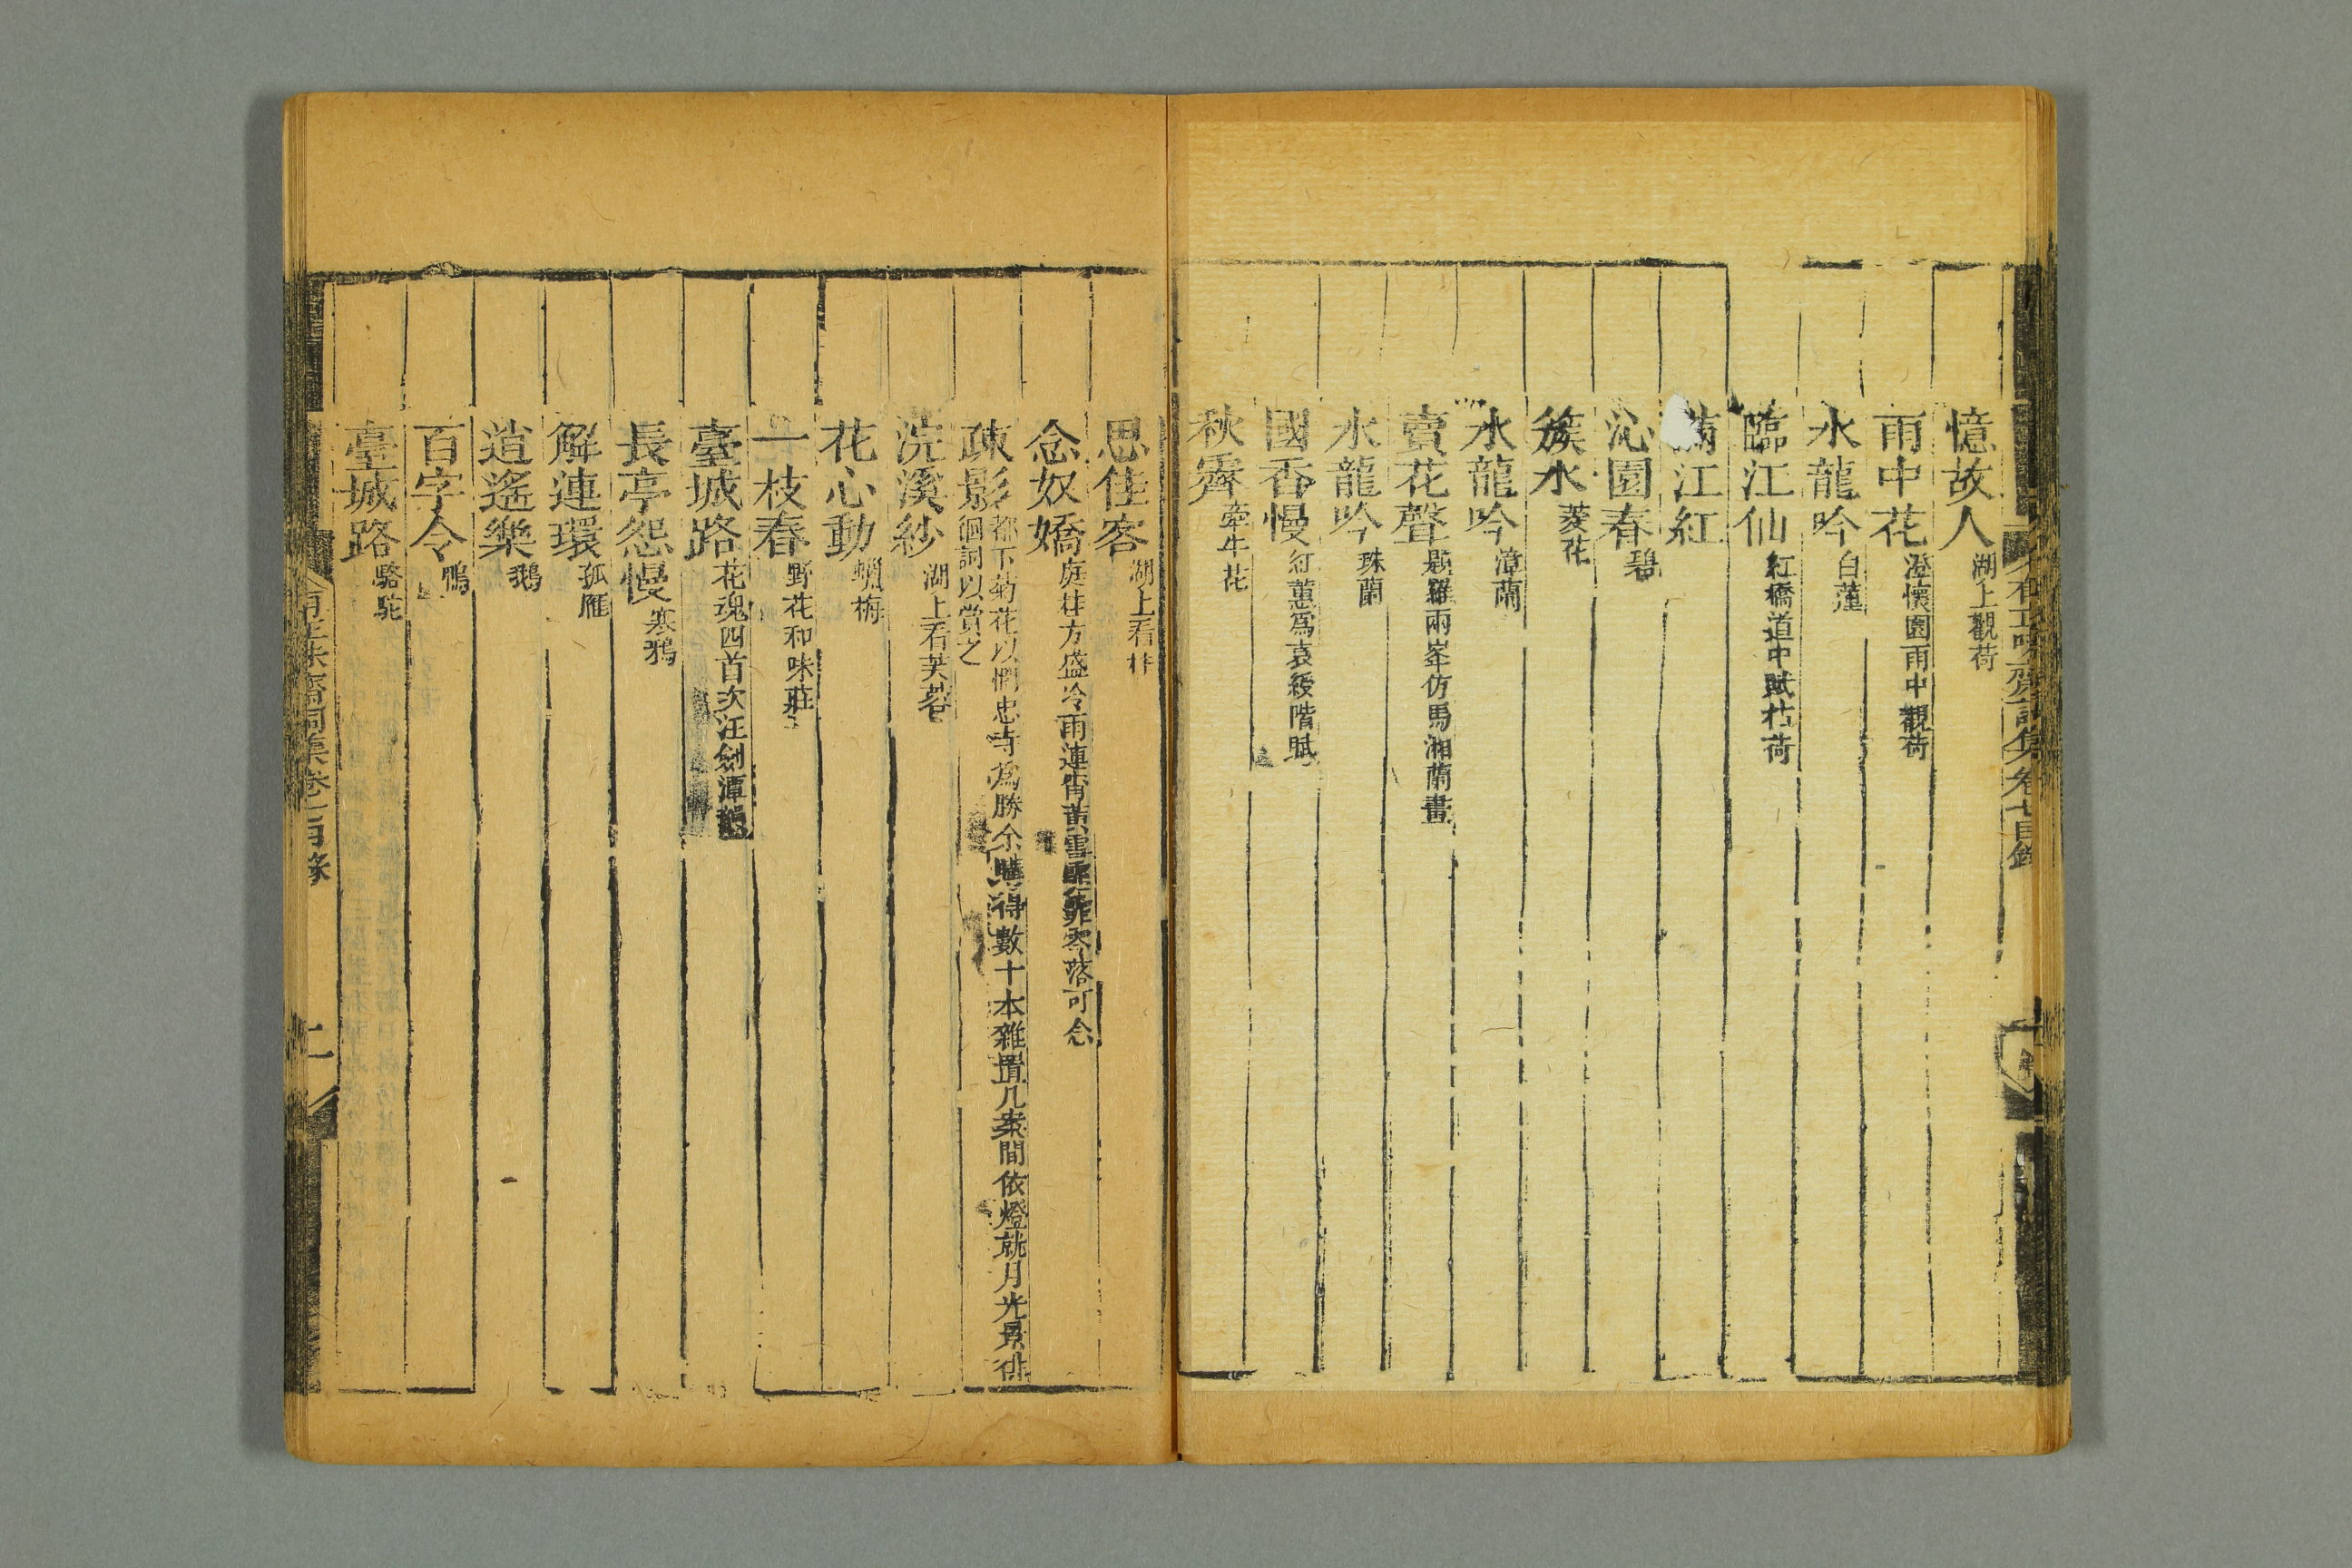 憶故人湖上觀荷
雨中花澄懷園雨中觀荷
水龍吟白蓮
臨江仙紅橋道中賦枯荷
滿江紅
沁園春碧
簇水菱花
水龍吟漳蘭
賣花聲題羅兩峯仿馬湘蘭畫
水龍吟珠蘭
國香慢紅蕙爲袁綬階賦
秋霽牽牛花
思佳客湖上看
念奴嬌庭桂方盛冷雨連宵黃雪霏零落可念
疎影都下菊花以憫忠寺爲勝余購得數十本雜置几案間依燈就月光景徘
徊詞以賞之
浣溪紗湖上看芙蓉
花心動蠟梅
一枝春野花和味莊
臺城路花魂四首次汪劍潭
長亭怨慢寒鴉
解連環孤雁
逍遙樂鵝
百字令
臺城路駱駝
有正味齋詞集卷七目錄
二